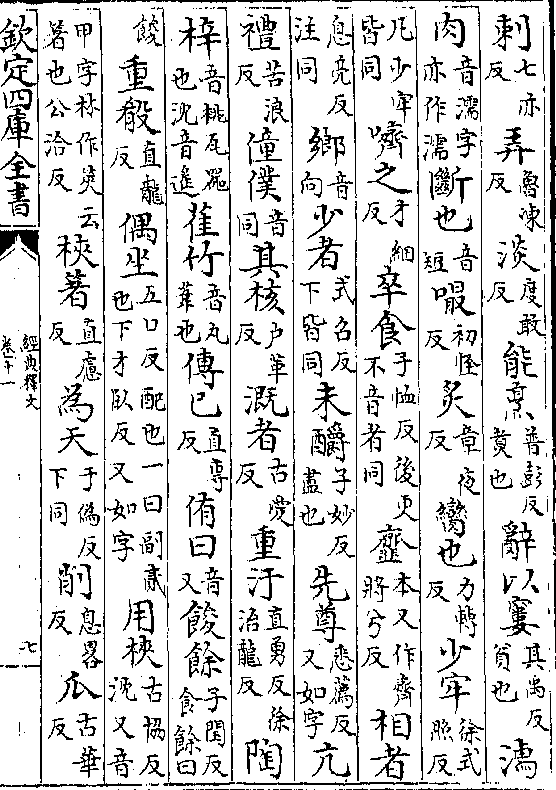 刺七亦反弄魯凍反淡度敢反能烹普彭反煑也辭以窶其禹反貧也濡
肉音濡字亦作濡斷也音短嘬初怪反炙章夜反臠也力轉反少牢徐式照反
凡少牢皆同嚌之才細反卒食子恤反後更不音者同齏本又作齊將兮反相者
息亮反注同鄉音向少者式召反下皆同未釂子妙反盡也先尊悉薦反又如字亢
禮苦浪反僮僕音同其核户革反溉者古愛反重汙直勇反徐治龍反陶
梓音桃瓦器也沈音遥萑竹音丸葦也傳已直專反侑曰音又餕餘子閏反食餘曰
餕重殽直龍反偶坐五口反配也一曰副貳也下才臥反又如字用梜古協反沈又音
甲字林作筴云箸也公洽反梜箸直慮反為天于偽反下同削息畧反瓜古華反
欽定四庫全書
經典釋文
卷十一
七